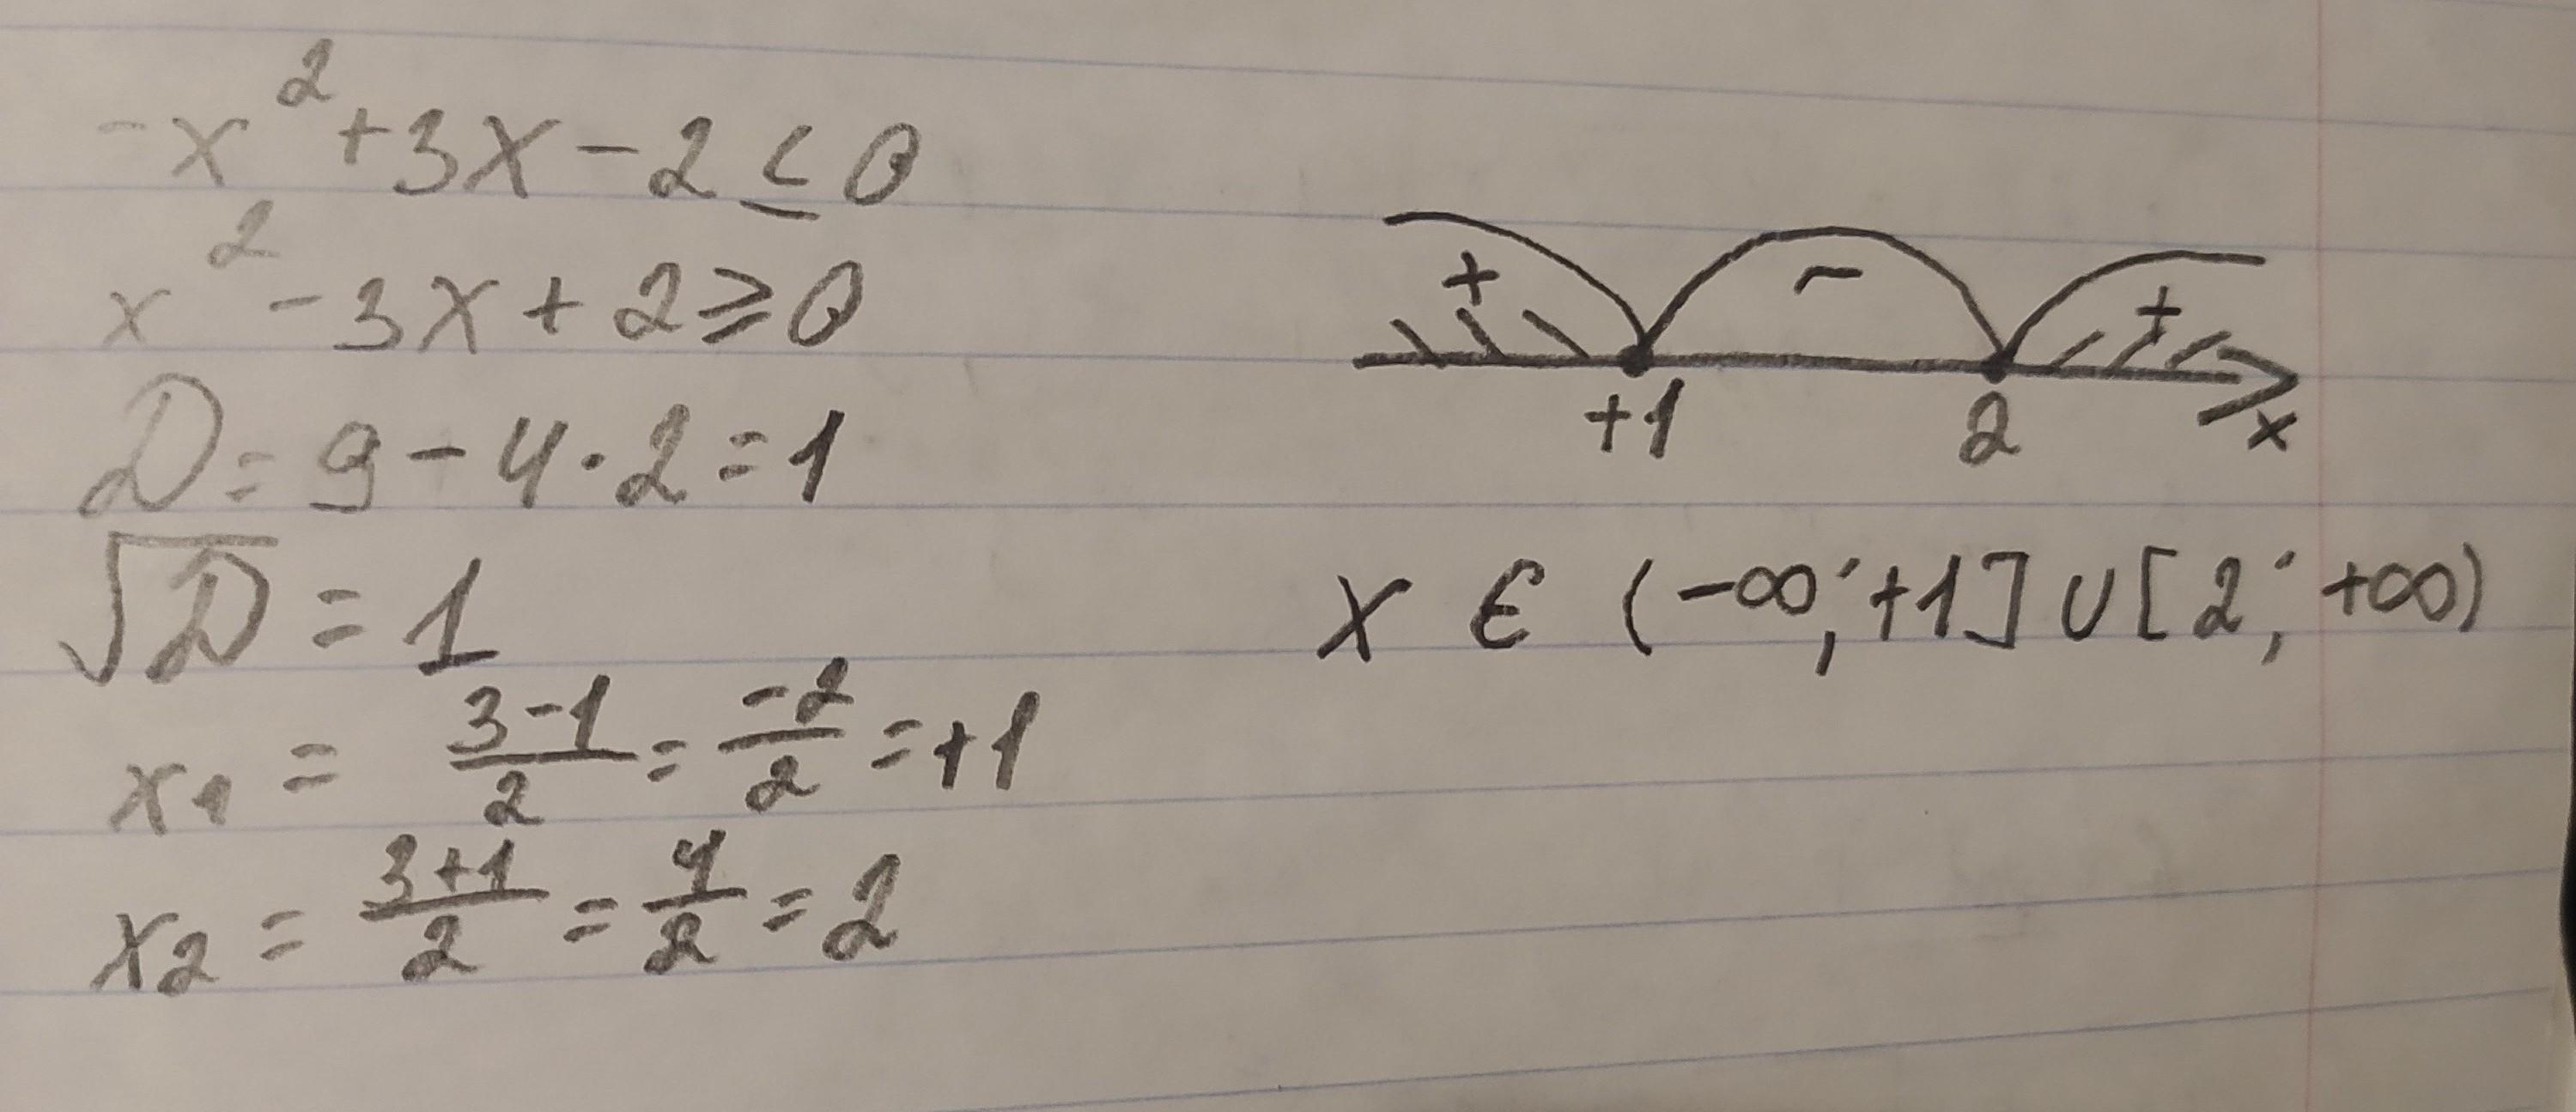 -x² + 3x - 2 ≤ 0
x² - 3x + 2 ≥ 0
D = 9 - 4 · 2 = 1
√D = 1
x₁ = (3-1)/2 = (-2)/2 = +1
x₂ = (3+1)/2 = 4/2 = 2
+ - +
+1 2 x
x ∈ (-∞; +1] ∪ [2; +∞)